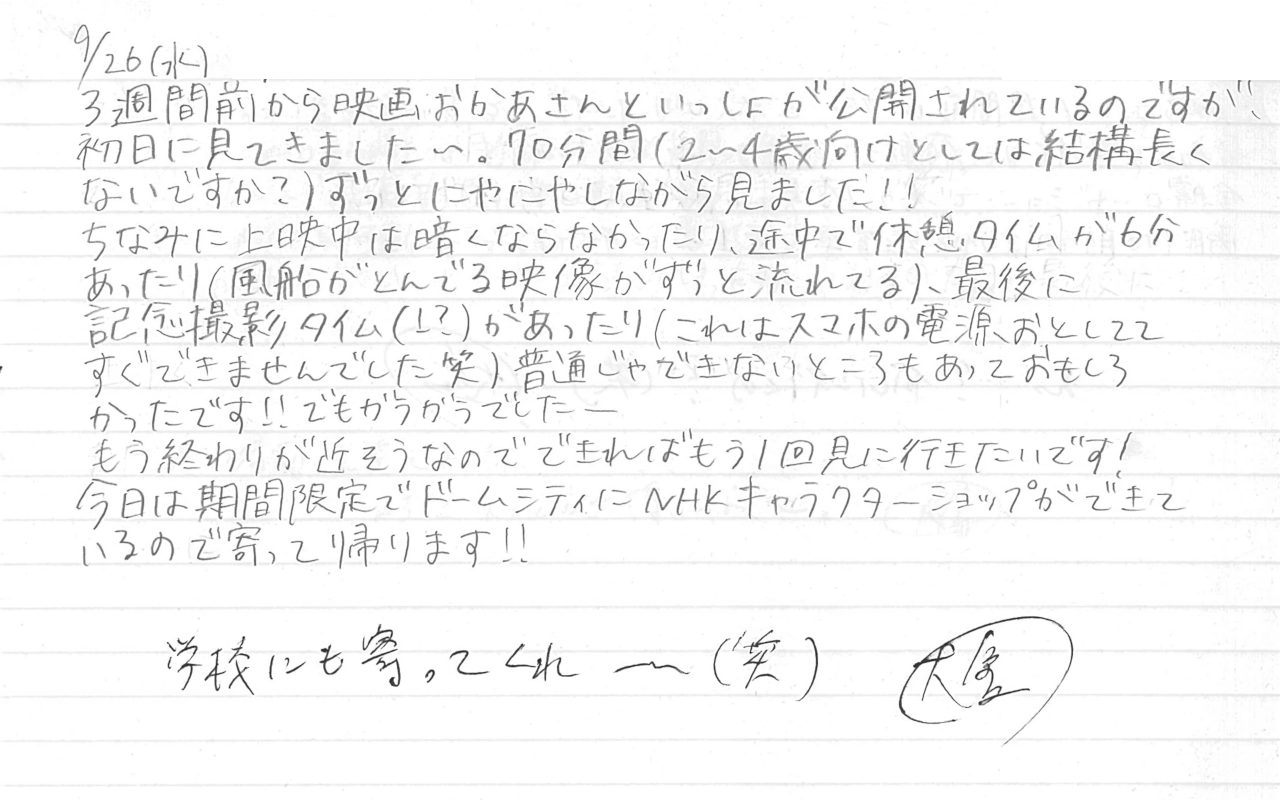 9/26(水)
3週間前から映画おかあさんといっしょが公開されているのですが、
初日に見てきました〜。70分間(2〜4歳向けとしては結構長く
ないですか?)ずっとにやにやしながら見ました!!
ちなみに上映中は暗くならなかったり、途中で休憩タイムが6分
あったり(風船がとんでる映像がずっと流れてる)、最後に
記念撮影タイム(!?)があったり(これはスマホの電源おとしてて
すぐできませんでした笑)普通じゃできないところもあっておもしろ
かったです!!でもがらがらでしたー
もう終わりが近そうなのでできればもう1回見に行きたいです!
今日は期間限定でドームシティにNHKキャラクターショップができて
いるので寄って帰ります!!
学校にも寄ってくれ〜(笑)